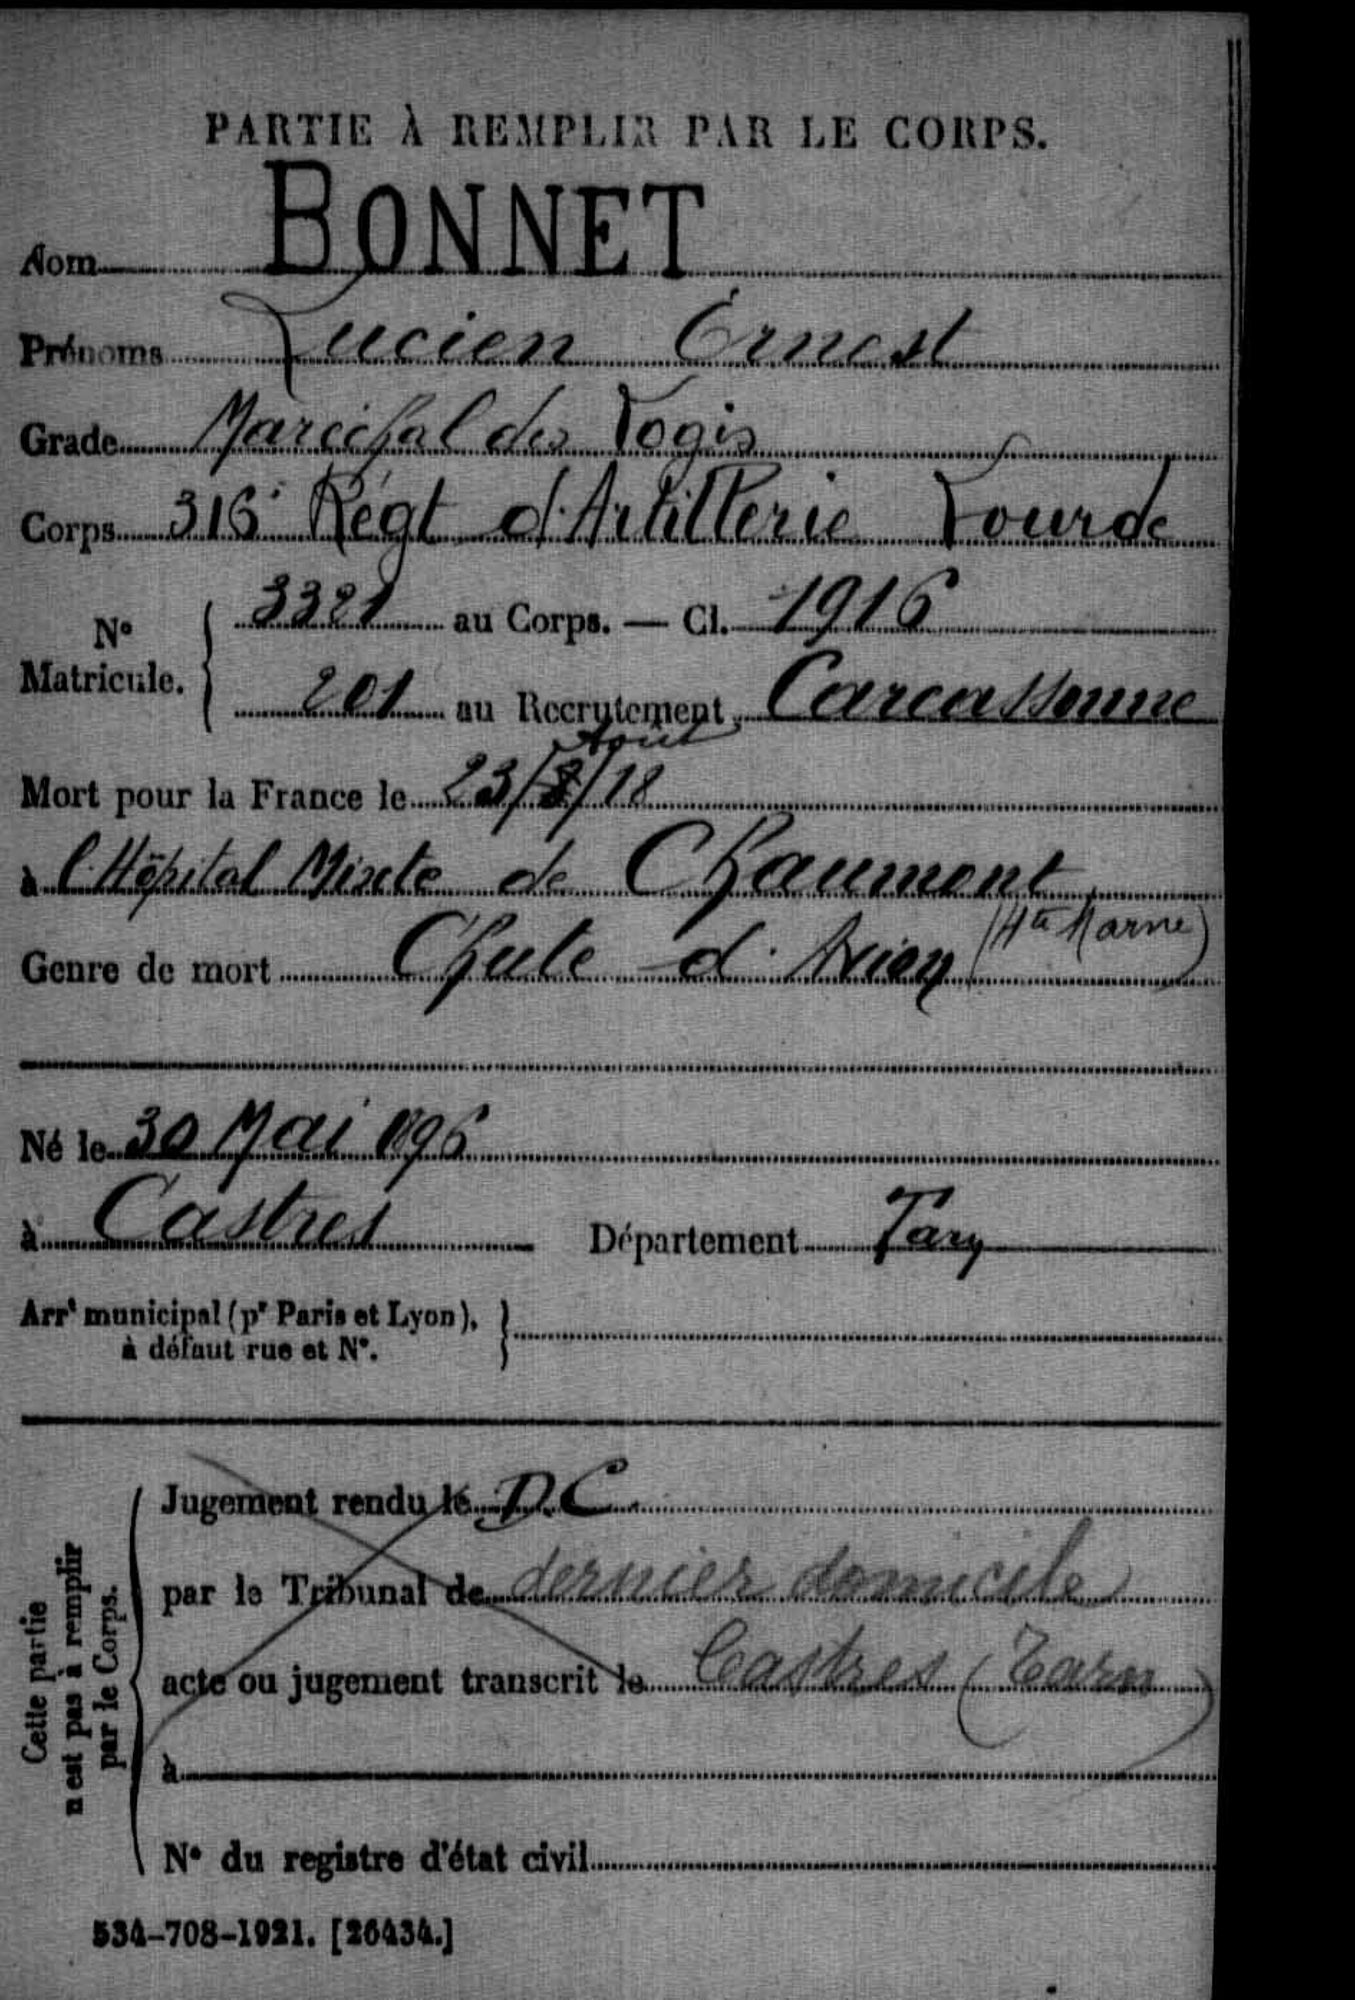 PARTIE À REMPLIR PAR LE CORPS.
Nom BONNET
Prénoms Lucien Ernest
Grade Maréchal des Logis
Corps 316e Régt d'Artillerie Lourde
N° Matricule. { 3321 au Corps. — Cl. 1916
201 au Recrutement Carcassonne
Août
Mort pour la France le 23/8/18
à l'Hôpital Mixte de Chaumont
(Hte Marne)
Genre de mort Chute d'Avion
Né le 30 Mai 1896
à Castres Département Tarn
Arrt municipal (pr Paris et Lyon), }
à défaut rue et N°.
Cette partie
n'est pas à remplir
par le Corps.
Jugement rendu le D.C.
par le Tribunal de dernier domicile
acte ou jugement transcrit le Castres (Tarn)
à
N° du registre d'état civil
534-708-1921. [26434.]